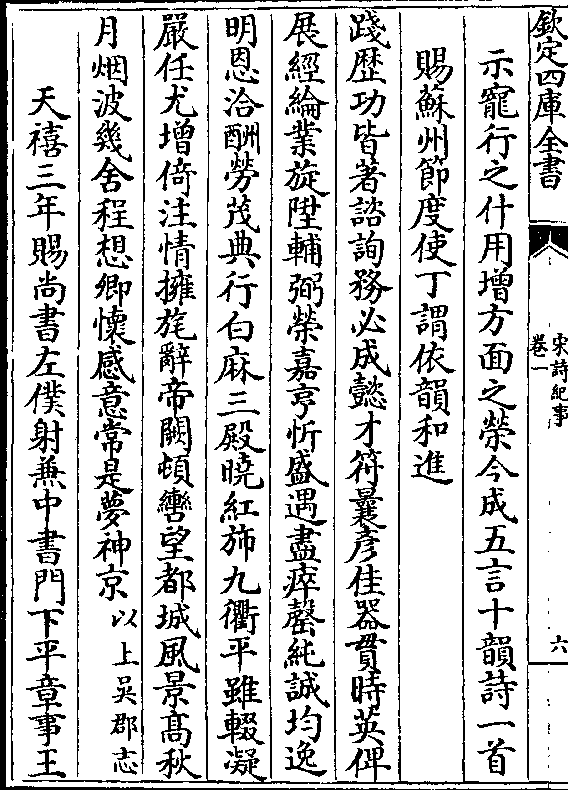 欽定四庫全書
宋詩紀事
卷一
六
示寵行之什用增方面之榮今成五言十韻詩一首
賜蘇州節度使丁謂依韻和進
踐歷功皆著諮詢務必成懿才符曩彥佳器貫時英俾
展經綸業旋陞輔弼榮嘉亨忻盛遇盡瘁罄純誠均逸
明恩洽酬勞茂典行白麻三殿曉紅斾九衢平雖輟凝
嚴任尤增倚注情擁旄辭帝闕頓轡望都城風景髙秋
月烟波幾舍程想卿懷感意常是夢神京以上吳郡志
天禧三年賜尚書左僕射兼中書門下平章事王